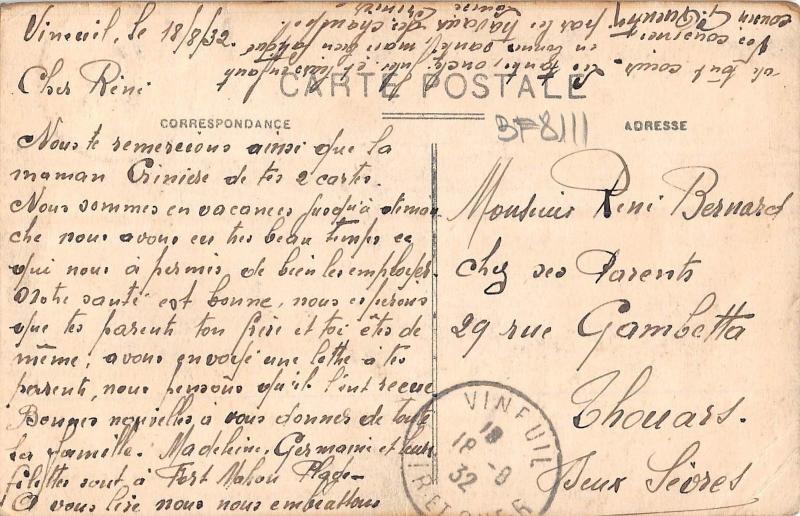 Vineuil, le 18/8/32.
Cher Réné
CARTE POSTALE
CORRESPONDANCE
BF8III
ADRESSE
Nous te remercions ainsi que la
maman Crinière de tes 2 cartes.
Nous sommes en vacances jusqu'à diman
che nous avons eu tres beau temps ce
qui nous à permis de bien les employer.
Notre santé est bonne, nous esperons
que tes parents ton frère et toi êtes de
même, avons envoyé une lettre à tes
parents, nous pensons qu'ils l'ont recue
Bonnes nouvelles à vous donner de toute
la famille. Madeleine, Germaine et leurs
fillettes sont à Fort Mahon Plage
A vous lire nous nous embrassons
de tout coeur
tes tantes, oncle
en bonne santé, mais bien fatigué
par les travaux des champs.
Vos cousines
cousin
Monsieur Réné Bernard
chez ses Parents
29 rue Gambetta
Thouars.
Deux Sèvres
VINEUIL
18
18 -8
32
LOIR ET CHER